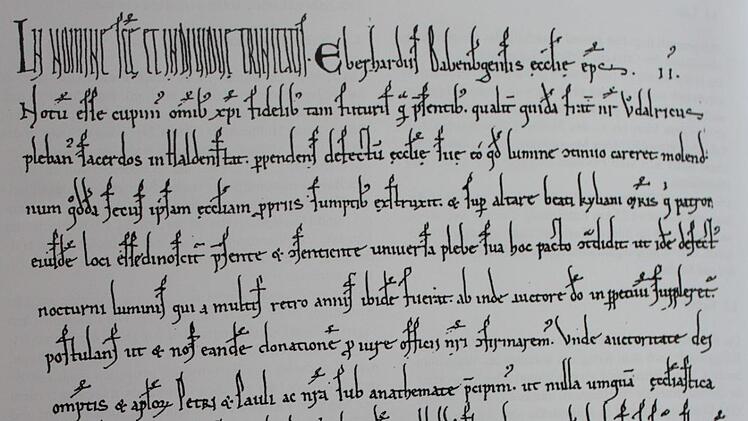 In nomine scę et individuę trinitatis. Eberhardus Babenbgensis ęcclię eps. II.
Notū esse cupim' omib' xpi fidelib' tam futuris q̄ psentib. qualit quida frat nr Vdalricus
pleban' sacerdos in Haldenstat. ppendens defectū ęcclię suę eo qd lumine nocturno careret molendi
num qdda secus ipsam ęcclesiam ppriis sumptib' exstruxit. & sup altare beati kyliani mris q patron'
eiusde loci esse dinoscit psente & sentiente universa plebe sua hoc pacto dtidit ut ide defect'
nocturni luminis qui a multis retro annis ibide fuerat. ab inde auctore do in ppetuu suppleret
postulans ut & nos eande donatione p iure officii nri sfirmarem'. Vnde auctoritate dei
omptis & aplor Petri & Pauli ac nra sub anathemate pcipim'. ut nulla umqua ęcclastica